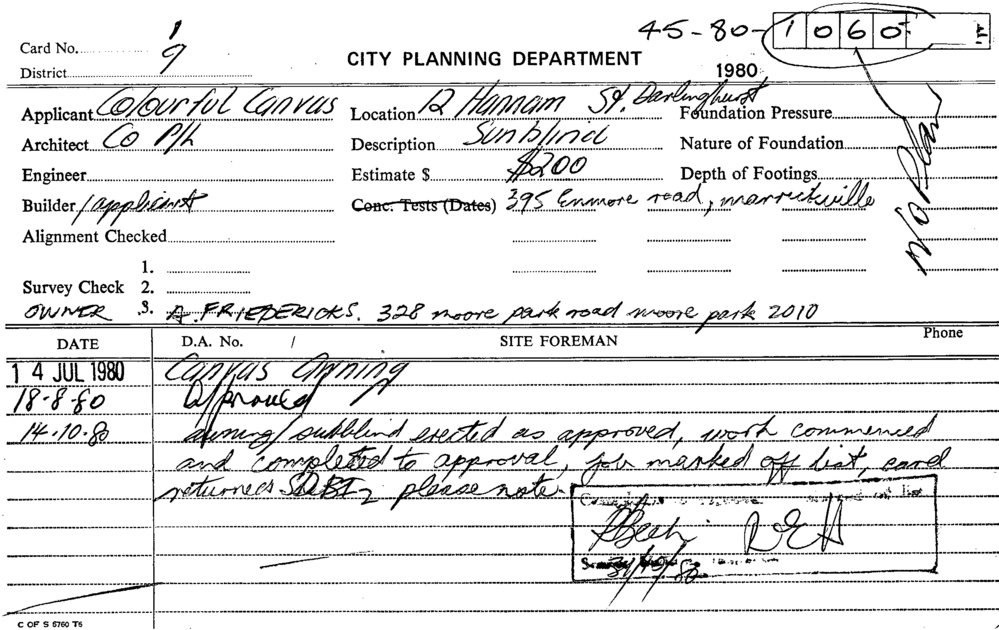 45-80-1060
Card No. 1
District 9
CITY PLANNING DEPARTMENT
1980
Applicant Colourful Canvas Location 12 Hannam St. Darlinghurst Foundation Pressure
Architect Co P/L Description Sunblind Nature of Foundation
Engineer Estimate $ $200 Depth of Footings
Builder applicant Conc. Tests (Dates) 395 Enmore road, marrickville
No Plan
Alignment Checked
1.
Survey Check 2.
OWNER 3. A. FRIEDERICKS. 328 moore park road moore park 2010
DATE D.A. No. / SITE FOREMAN Phone
14 JUL 1980 Canvas Awning
18-8-80 Approved
14-10-80 awning/sunblind erected as approved, work commenced
and completed to approval, job marked off list, card
returned please note
C OF S 6760 T6